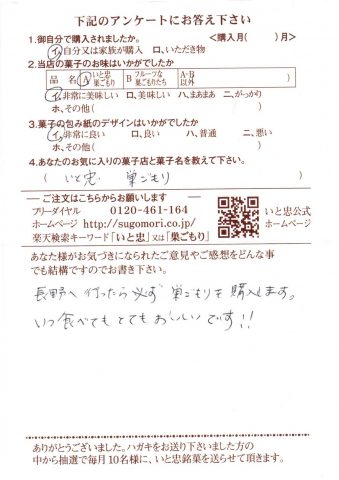 下記のアンケートにお答え下さい
1.御自分で購入されましたか。 <購入月( )月>
イ、自分又は家族が購入 ロ、いただき物
2.当店の菓子のお味はいかがでしたか
品名 A いと忠巣ごもり B フルーツな巣ごもりたち A・B以外( )
イ、非常に美味しい ロ、美味しい ハ、まあまあ ニ、がっかり
ホ、その他( )
3.菓子の包み紙のデザインはいかがでしたか
イ、非常に良い ロ、良い ハ、普通 ニ、悪い
ホ、その他( )
4.あなたのお気に入りの菓子店と菓子名を教えて下さい。
( いと忠. 巣ごもり )
ご注文はこちらからお願いします
フリーダイヤル 0120-461-164
ホームページ http://sugomori.co.jp/
楽天検索キーワード「いと忠」又は「巣ごもり」
いと忠公式
ホームページ
あなた様がお気づきになられたご意見やご感想をどんな事
でも結構ですのでお書き下さい。
長野へ行ったら必ず巣ごもりを購入します。
いつ食べてもとてもおいしいです!!
ありがとうございました。ハガキをお送り下さいました方の
中から抽選で毎月10名様に、いと忠銘菓を送らせて頂きます。